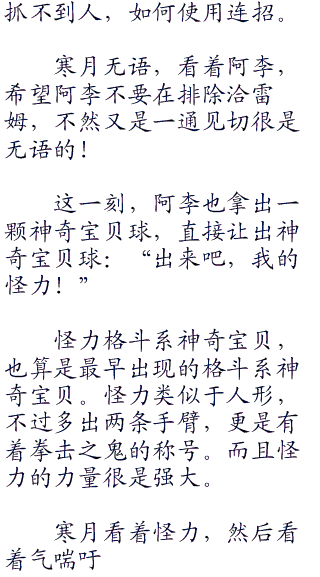 抓不到人，如何使用连招。
寒月无语，看着阿李，
希望阿李不要在排除洽雷
姆，不然又是一通见切很是
无语的！
这一刻，阿李也拿出一
颗神奇宝贝球，直接让出神
奇宝贝球：“出来吧，我的
怪力！”
怪力格斗系神奇宝贝，
也算是最早出现的格斗系神
奇宝贝。怪力类似于人形，
不过多出两条手臂，更是有
着拳击之鬼的称号。而且怪
力的力量很是强大。
寒月看着怪力，然后看
着气喘吁